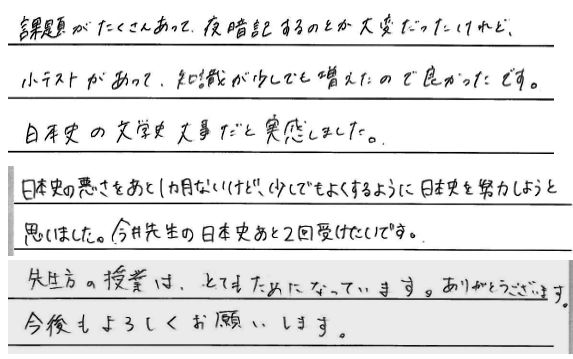 課題がたくさんあって、夜暗記するのとか大変だったけれど、
小テストがあって、知識が少しでも増えたので良かったです。
日本史の文学史大事だと実感しました。
日本史の悪さをあと1カ月ないけど、少しでもよくするように日本史を努力しようと
思いました。今井先生の日本史あと2回受けたいです。
先生方の授業は、とてもためになっています。ありがとうございます。
今後もよろしくお願いします。